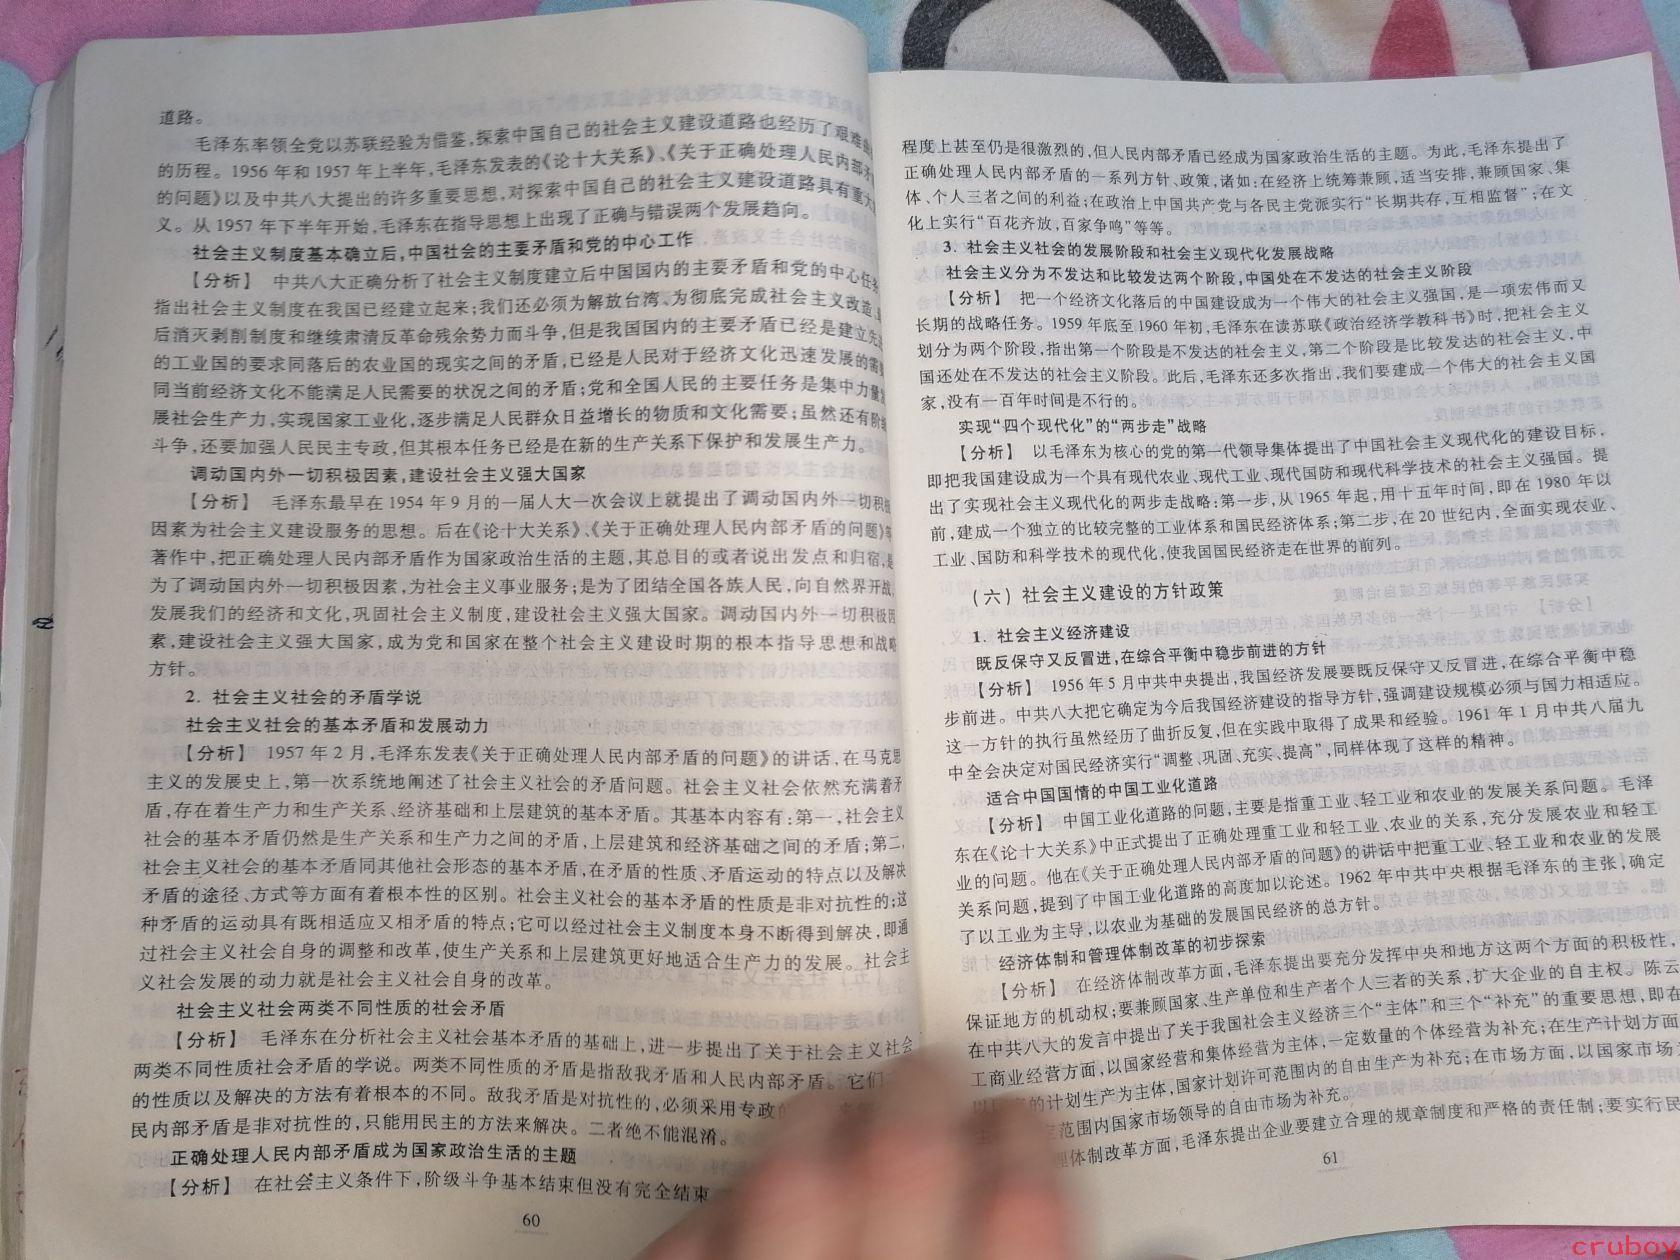 道路。
毛泽东率领全党以苏联经验为借鉴,探索中国自己的社会主义建设道路也经历了艰难曲
的历程。1956年和1957年上半年,毛泽东发表的《论十大关系》、《关于正确处理人民内部矛
的问题》以及中共八大提出的许多重要思想,对探索中国自己的社会主义建设道路具有重大
义。从1957年下半年开始,毛泽东在指导思想上出现了正确与错误两个发展趋向。
社会主义制度基本确立后,中国社会的主要矛盾和党的中心工作
【分析】 中共八大正确分析了社会主义制度建立后中国国内的主要矛盾和党的中心任务
指出社会主义制度在我国已经建立起来;我们还必须为解放台湾、为彻底完成社会主义改造、
后消灭剥削制度和继续肃清反革命残余势力而斗争,但是我国国内的主要矛盾已经是建立先进
的工业国的要求同落后的农业国的现实之间的矛盾,已经是人民对于经济文化迅速发展的需要
同当前经济文化不能满足人民需要的状况之间的矛盾;党和全国人民的主要任务是集中力量发
展社会生产力,实现国家工业化,逐步满足人民群众日益增长的物质和文化需要;虽然还有阶级
斗争,还要加强人民民主专政,但其根本任务已经是在新的生产关系下保护和发展生产力。
调动国内外一切积极因素,建设社会主义强大国家
【分析】 毛泽东最早在1954年9月的一届人大一次会议上就提出了调动国内外一切积极
因素为社会主义建设服务的思想。后在《论十大关系》、《关于正确处理人民内部矛盾的问题》等
著作中,把正确处理人民内部矛盾作为国家政治生活的主题,其总目的或者说出发点和归宿,是
为了调动国内外一切积极因素,为社会主义事业服务;是为了团结全国各族人民,向自然界开战,
发展我们的经济和文化,巩固社会主义制度,建设社会主义强大国家。调动国内外一切积极因
素,建设社会主义强大国家,成为党和国家在整个社会主义建设时期的根本指导思想和战略
方针。
2. 社会主义社会的矛盾学说
社会主义社会的基本矛盾和发展动力
【分析】 1957年2月,毛泽东发表《关于正确处理人民内部矛盾的问题》的讲话,在马克思
主义的发展史上,第一次系统地阐述了社会主义社会的矛盾问题。社会主义社会依然充满着矛
盾,存在着生产力和生产关系、经济基础和上层建筑的基本矛盾。其基本内容有:第一,社会主义
社会的基本矛盾仍然是生产关系和生产力之间的矛盾,上层建筑和经济基础之间的矛盾;第二,
社会主义社会的基本矛盾同其他社会形态的基本矛盾,在矛盾的性质、矛盾运动的特点以及解决
矛盾的途径、方式等方面有着根本性的区别。社会主义社会的基本矛盾的性质是非对抗性的;这
种矛盾的运动具有既相适应又相矛盾的特点;它可以经过社会主义制度本身不断得到解决,即通
过社会主义社会自身的调整和改革,使生产关系和上层建筑更好地适合生产力的发展。社会主
义社会发展的动力就是社会主义社会自身的改革。
社会主义社会两类不同性质的社会矛盾
【分析】 毛泽东在分析社会主义社会基本矛盾的基础上,进一步提出了关于社会主义社会
两类不同性质社会矛盾的学说。两类不同性质的矛盾是指敌我矛盾和人民内部矛盾。它们
的性质以及解决的方法有着根本的不同。敌我矛盾是对抗性的,必须采用专政的
民内部矛盾是非对抗性的,只能用民主的方法来解决。二者绝不能混淆。
正确处理人民内部矛盾成为国家政治生活的主题
【分析】 在社会主义条件下,阶级斗争基本结束但没有完全结束
60
程度上甚至仍是很激烈的,但人民内部矛盾已经成为国家政治生活的主题。为此,毛泽东提出了
正确处理人民内部矛盾的一系列方针、政策,诸如:在经济上统筹兼顾,适当安排,兼顾国家、集
体、个人三者之间的利益;在政治上中国共产党与各民主党派实行“长期共存,互相监督”;在文
化上实行“百花齐放,百家争鸣”等等。
3. 社会主义社会的发展阶段和社会主义现代化发展战略
社会主义分为不发达和比较发达两个阶段,中国处在不发达的社会主义阶段
【分析】 把一个经济文化落后的中国建设成为一个伟大的社会主义强国,是一项宏伟而又
长期的战略任务。1959年底至1960年初,毛泽东在读苏联《政治经济学教科书》时,把社会主义
划分为两个阶段,指出第一个阶段是不发达的社会主义,第二个阶段是比较发达的社会主义,中
国还处在不发达的社会主义阶段。此后,毛泽东还多次指出,我们要建成一个伟大的社会主义国
家,没有一百年时间是不行的。
实现“四个现代化”的“两步走”战略
【分析】 以毛泽东为核心的党的第一代领导集体提出了中国社会主义现代化的建设目标,
即把我国建设成为一个具有现代农业、现代工业、现代国防和现代科学技术的社会主义强国。提
出了实现社会主义现代化的两步走战略:第一步,从1965年起,用十五年时间,即在1980年以
前,建成一个独立的比较完整的工业体系和国民经济体系;第二步,在20世纪内,全面实现农业、
工业、国防和科学技术的现代化,使我国国民经济走在世界的前列。
(六) 社会主义建设的方针政策
1. 社会主义经济建设
既反保守又反冒进,在综合平衡中稳步前进的方针
【分析】 1956年5月中共中央提出,我国经济发展要既反保守又反冒进,在综合平衡中稳
步前进。中共八大把它确定为今后我国经济建设的指导方针,强调建设规模必须与国力相适应。
这一方针的执行虽然经历了曲折反复,但在实践中取得了成果和经验。1961年1月中共八届九
中全会决定对国民经济实行“调整、巩固、充实、提高”,同样体现了这样的精神。
适合中国国情的中国工业化道路
【分析】 中国工业化道路的问题,主要是指重工业、轻工业和农业的发展关系问题。毛泽
东在《论十大关系》中正式提出了正确处理重工业和轻工业、农业的关系,充分发展农业和轻工
业的问题。他在《关于正确处理人民内部矛盾的问题》的讲话中把重工业、轻工业和农业的发展
关系问题,提到了中国工业化道路的高度加以论述。1962年中共中央根据毛泽东的主张,确定
了以工业为主导,以农业为基础的发展国民经济的总方针。
经济体制和管理体制改革的初步探索
【分析】 在经济体制改革方面,毛泽东提出要充分发挥中央和地方这两个方面的积极性,
保证地方的机动权;要兼顾国家、生产单位和生产者个人三者的关系,扩大企业的自主权。陈云
在中共八大的发言中提出了关于我国社会主义经济三个“主体”和三个“补充”的重要思想,即在
工商业经营方面,以国家经营和集体经营为主体,一定数量的个体经营为补充;在生产计划方面
的计划生产为主体,国家计划许可范围内的自由生产为补充;在市场方面,以国家市场
范围内国家市场领导的自由市场为补充。
理体制改革方面,毛泽东提出企业要建立合理的规章制度和严格的责任制;要实行民
61
cruboy